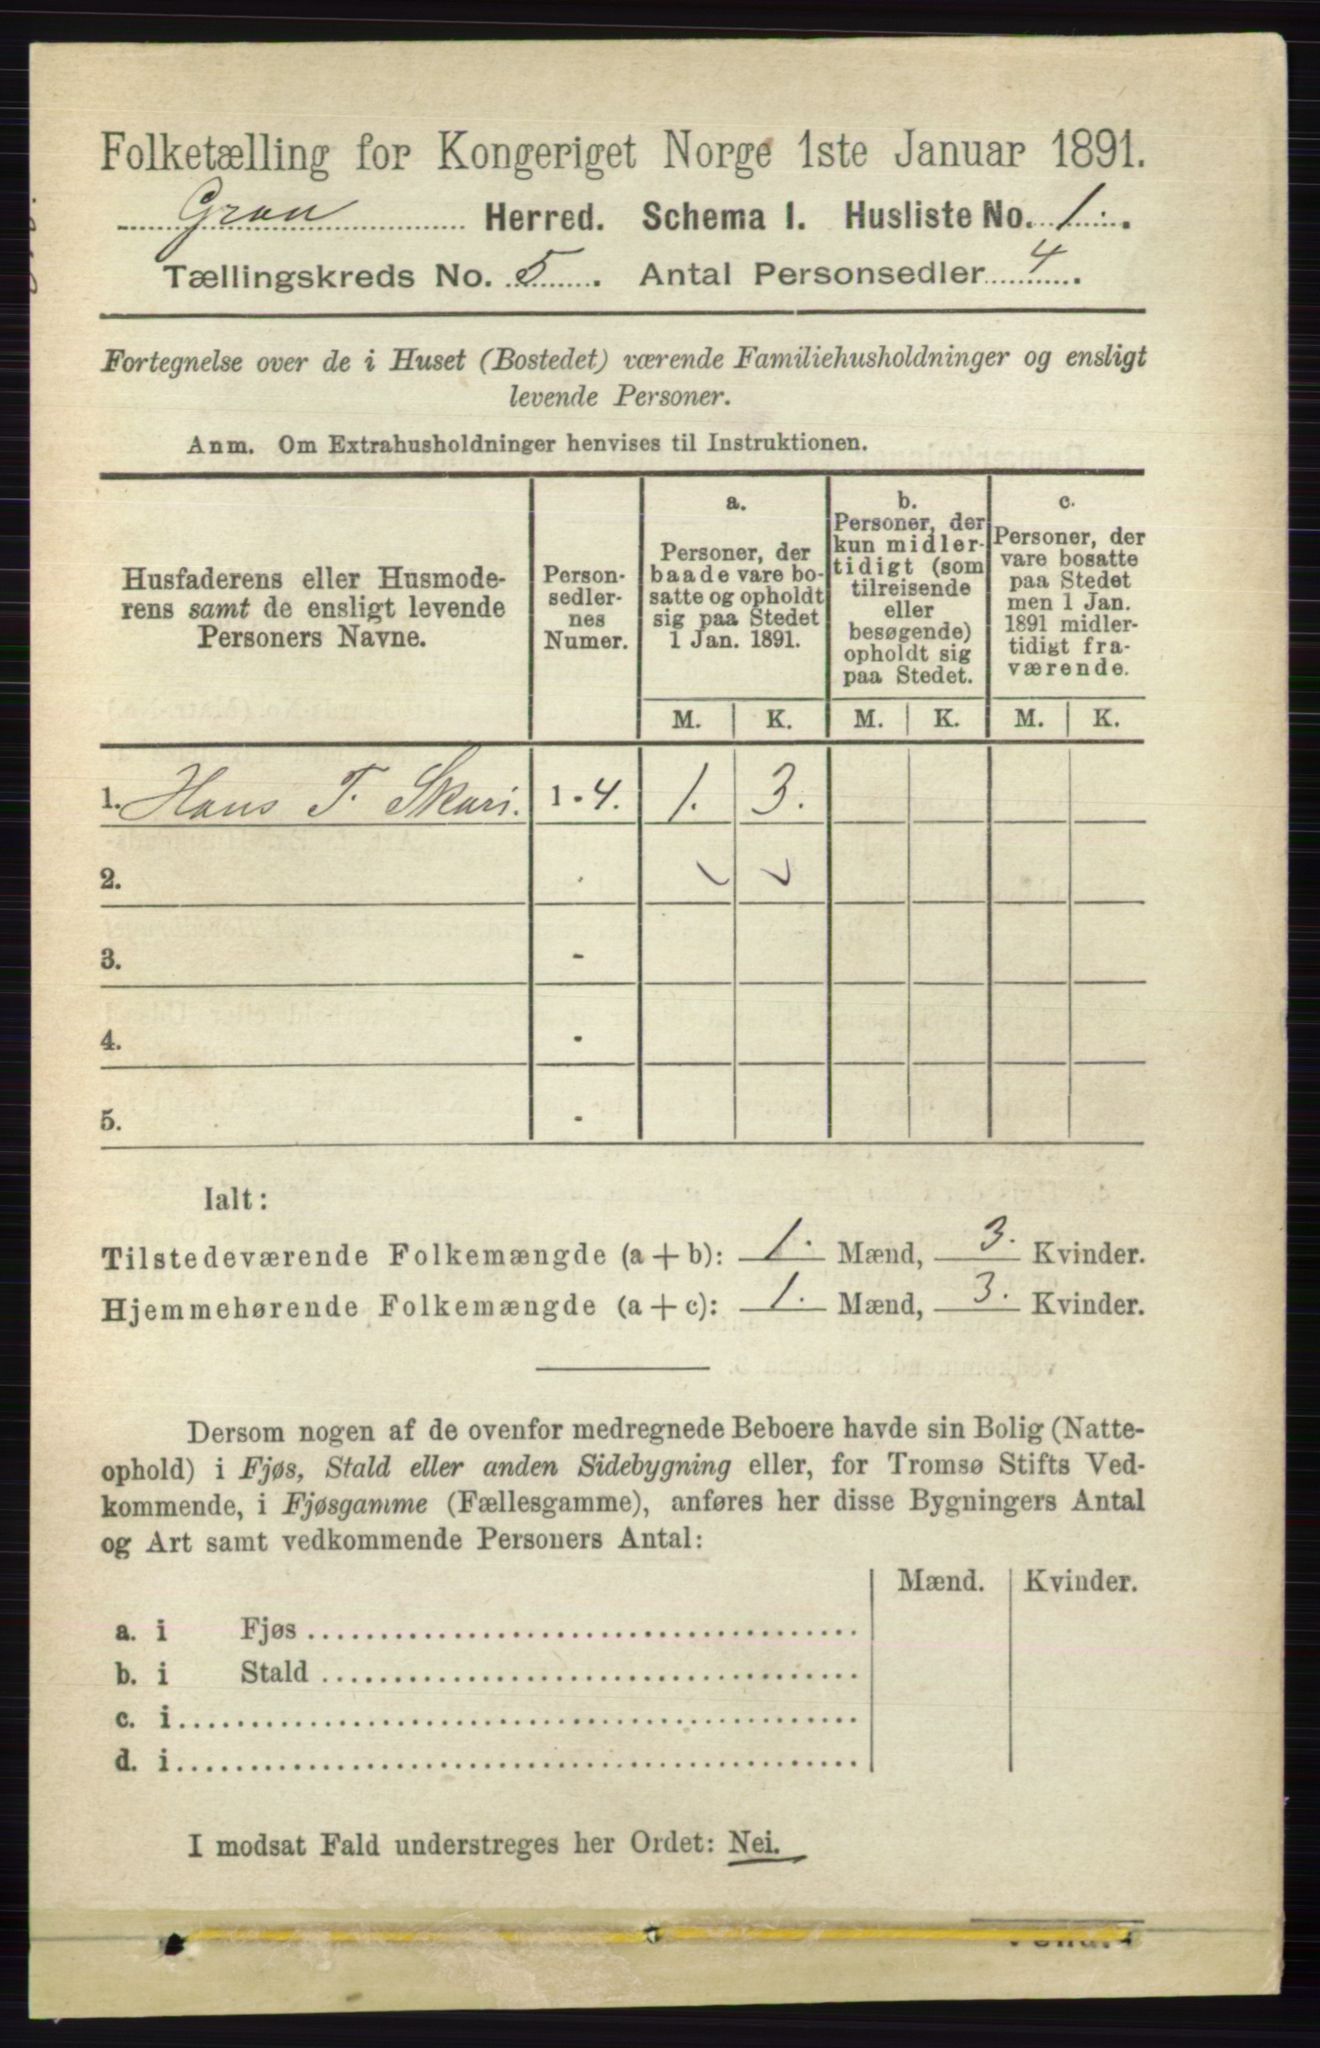 Folketælling for Kongeriget Norge 1ste Januar 1891.
Gran Herred. Schema I. Husliste No. 1.
Tællingskreds No. 5. Antal Personsedler 4.
Fortegnelse over de i Huset (Bostedet) værende Familiehusholdninger og ensligt
levende Personer.
Anm. Om Extrahusholdninger henvises til Instruktionen.
Husfaderens eller Husmode-
rens samt de ensligt levende
Personers Navne.
Person-
sedler-
nes
Numer.
a.
Personer, der
baade vare bo-
satte og opholdt
sig paa Stedet
1 Jan. 1891.
b.
Personer, der
kun midler-
tidigt (som
tilreisende
eller
besøgende)
opholdt sig
paa Stedet.
c.
Personer, der
vare bosatte
paa Stedet
men 1 Jan.
1891 midler-
tidigt fra-
værende.
M. K. M. K. M. K.
1. Hans T. Skari. 1-4. 1. 3.
2.
3. -
4. -
5. -
Ialt:
Tilstedeværende Folkemængde (a + b): 1. Mænd, 3. Kvinder.
Hjemmehørende Folkemængde (a + c): 1. Mænd, 3. Kvinder.
Dersom nogen af de ovenfor medregnede Beboere havde sin Bolig (Natte-
ophold) i Fjøs, Stald eller anden Sidebygning eller, for Tromsø Stifts Ved-
kommende, i Fjøsgamme (Fællesgamme), anføres her disse Bygningers Antal
og Art samt vedkommende Personers Antal:
Mænd. Kvinder.
a. i Fjøs
b. i Stald
c. i
d. i
I modsat Fald understreges her Ordet: Nei.